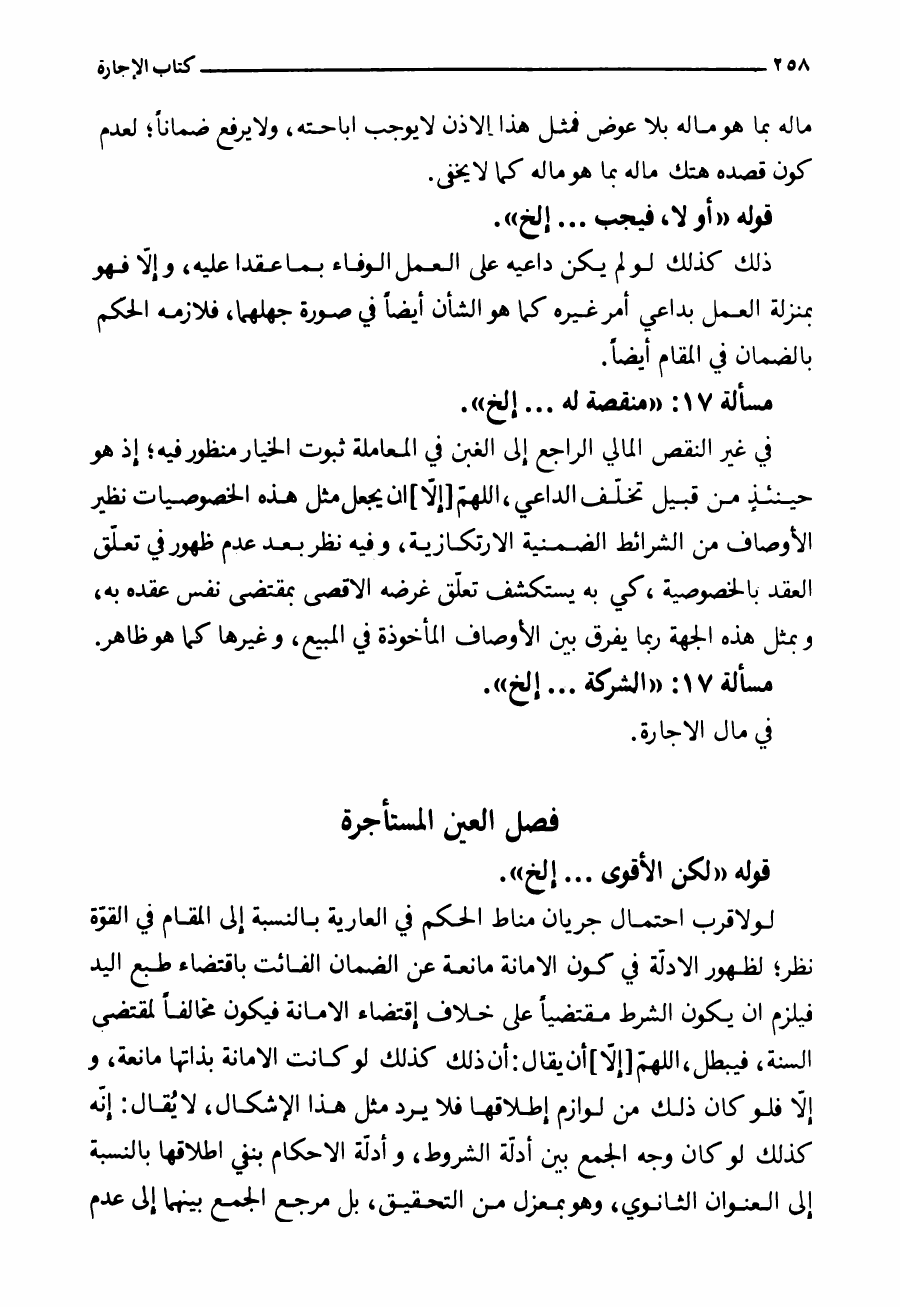 ٢٥٨ كتاب الإجارة
ماله بما هو ماله بلا عوض فمثل هذا الاذن لا يوجب اباحته، ولا يرفع ضماناً؛ لعدم
كون قصده هتك ماله بما هو ماله كما لا يخفى.
قوله «أو لا، فيجب ... إلخ».
ذلك كذلك لو لم يكن داعيه على العمل الوفاء بما عقدا عليه، و إلّا فهو
بمنزلة العمل بداعي أمر غيره كما هو الشأن أيضاً في صورة جهلهما، فلازمه الحكم
بالضمان في المقام أيضاً.
مسألة ١٧: «منقصة له ... إلخ».
في غير النقص المالي الراجع إلى الغبن في المعاملة ثبوت الخيار منظور فيه؛ إذ هو
حينئذٍ من قبيل تخلّف الداعي، اللهمّ [إلّا] ان يجعل مثل هذه الخصوصيات نظير
الأوصاف من الشرائط الضمنية الارتكازية، و فيه نظر بعد عدم ظهور في تعلّق
العقد بالخصوصية، كي به يستكشف تعلّق غرضه الاقصى بمقتضى نفس عقده به،
و بمثل هذه الجهة ربما يفرق بين الأوصاف المأخوذة في المبيع، و غيرها كما هو ظاهر.
مسألة ١٧: «الشركة ... إلخ».
في مال الاجارة.
فصل العين المستأجرة
قوله «لكن الأقوى ... إلخ».
لولا قرب احتمال جريان مناط الحكم في العارية بالنسبة إلى المقام في القوّة
نظر؛ لظهور الادلّة في كون الامانة مانعة عن الضمان الفائت باقتضاء طبع اليد
فيلزم ان يكون الشرط مقتضياً على خلاف إقتضاء الامانة فيكون مخالفاً لمقتضى
السنة، فيبطل، اللهمّ [إلّا] أن يقال: أن ذلك كذلك لو كانت الامانة بذاتها مانعة، و
إلّا فلو كان ذلك من لوازم إطلاقها فلا يرد مثل هذا الإشكال، لا يُقال: إنّه
كذلك لو كان وجه الجمع بين أدلّة الشروط، و أدلّة الاحكام بنفي اطلاقها بالنسبة
إلى العنوان الثانوي، وهو بمعزل من التحقيق، بل مرجع الجمع بينهما إلى عدم